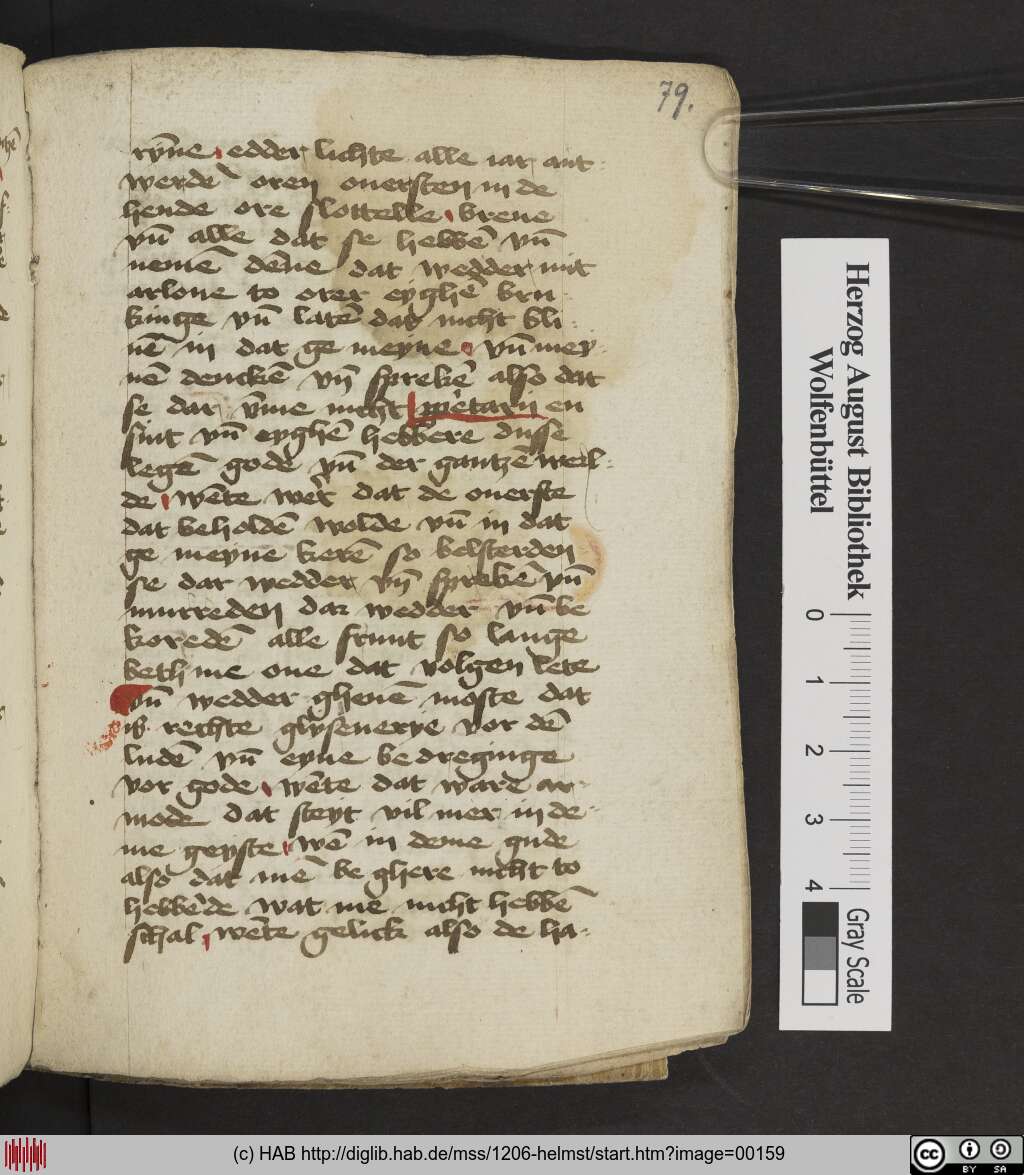 79.
ryne edder lichte alle iar ant
werdē oren ouersten in de
hende ore slottelle breue
vn̄ alle dat se hebbē vn̄
nemē dēne dat wedder mit
orloue to orer eyghē bru
kinge vn̄ latē dat nicht bli
uē in dat ge meyne vn̄ mey
nē denckē vn̄ sprekē also dat
se dar v̄me nicht ꝓprietarii en
sint vn̄ eyghē hebbere dusse
legē gode vn̄ der gantzē werl
de wēte wēr dat de ouerste
dat beholdē wolde vn̄ in dat
ge meyne kerē so bolsterden
se dar wedder vn̄ sprekē vn̄
murreden dar wedder vn̄ be
koredē alle frunt so lange
beth me one dat volgen lete
vn̄ wedder gheuē moste dat
is rechte glysenerye vor dē
ludē vn̄ eyne bedreginge
vor gode wēte dat ware ar
mode dat steyt vil mer in de
me geyste wē in deme gude
also dat mē be ghere nicht to
hebbēde wat me nicht hebbē
schal wēte gelick also de ha
Herzog August Bibliothek
Wolfenbüttel
0 1 2 3 4
Gray Scale
(c) HAB http://diglib.hab.de/mss/1206-helmst/start.htm?image=00159
cc BY SA